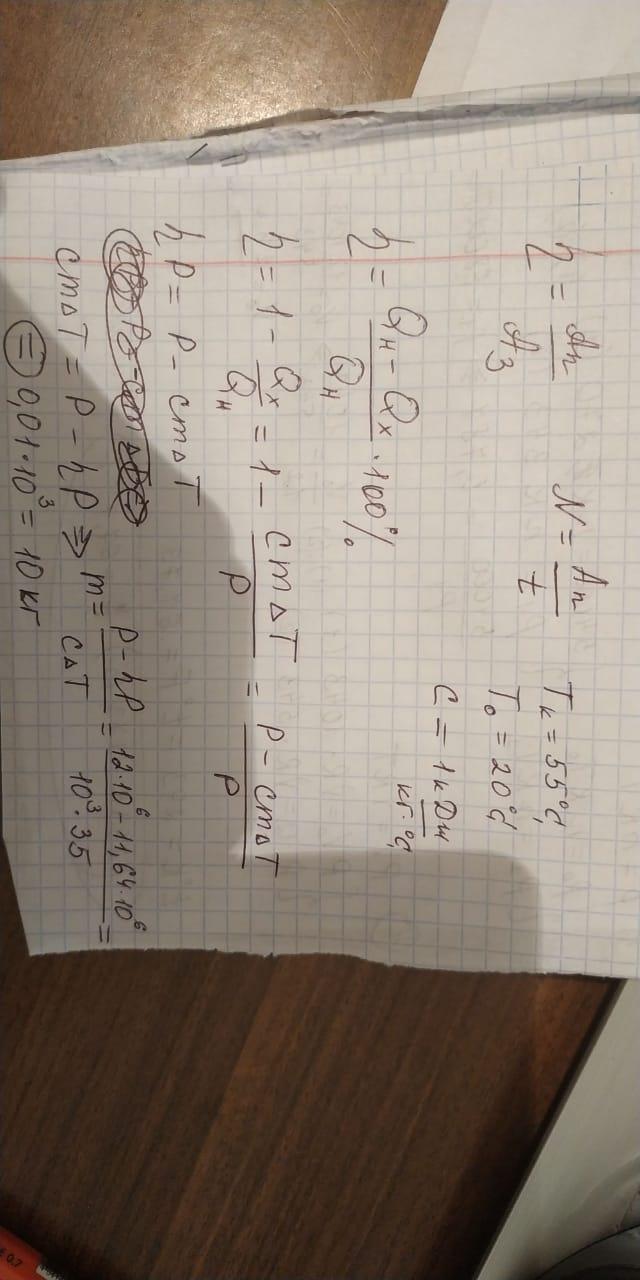 η = Aп / Aз N = Aп / t Tк = 55°C
T₀ = 20°C
C = 1 кДж / кг·°C
η = Qн - Qх / Qн · 100%
η = 1 - Qх / Qн = 1 - cmΔT / P = P - cmΔT / P
ηP = P - cmΔT
cmΔT = P - ηP ⇒ m = P - ηP / cΔT = 12·10⁶ - 11,64·10⁶ / 10³·35 =
= 0,01·10³ = 10 кг
0.7